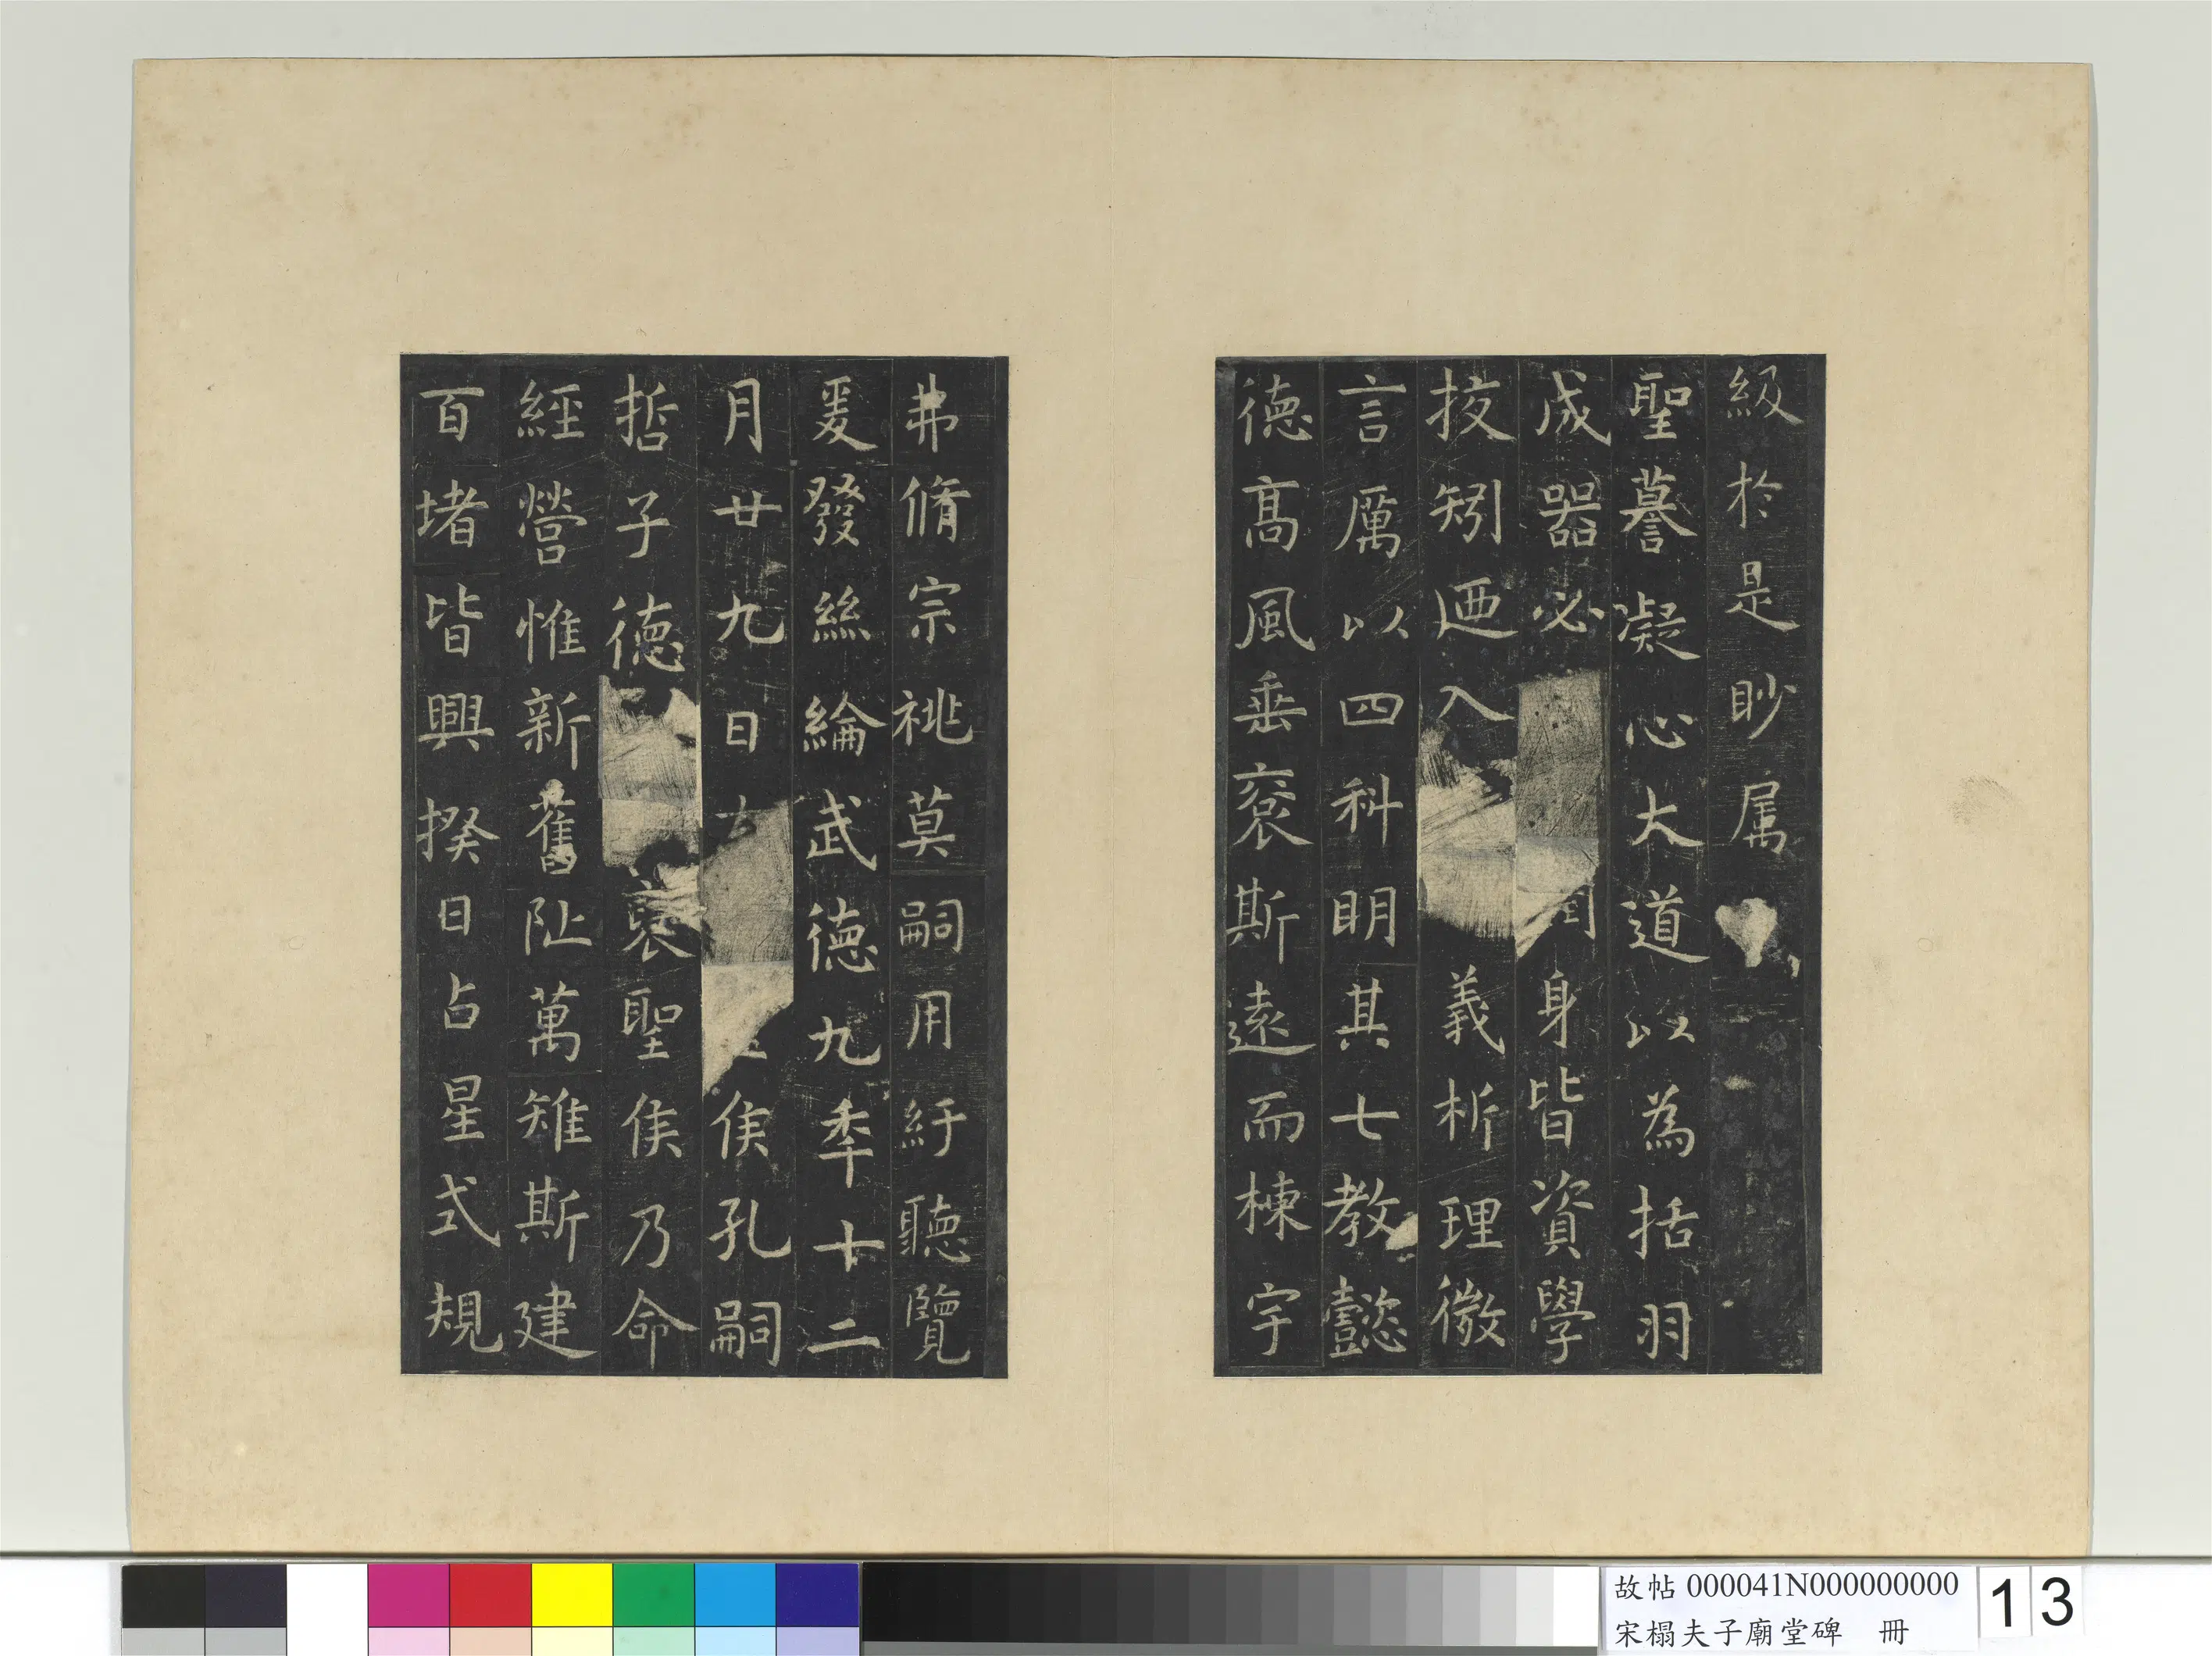 級於是眇属
聖謩凝心大道以為括羽
成器必身皆資學
挍矧迺入義析理微
言厲以四科明其七教懿
德髙風垂裦斯遠而棟宇
弗脩宗祧莫嗣用紆聽覽
爰發絲綸武德九秊十二
月廿九日侯孔嗣
哲子德裦聖侯乃命
經營惟新舊阯萬雉斯建
百堵皆興揆日占星式規
故帖 000041N000000000
宋榻夫子廟堂碑 冊
13